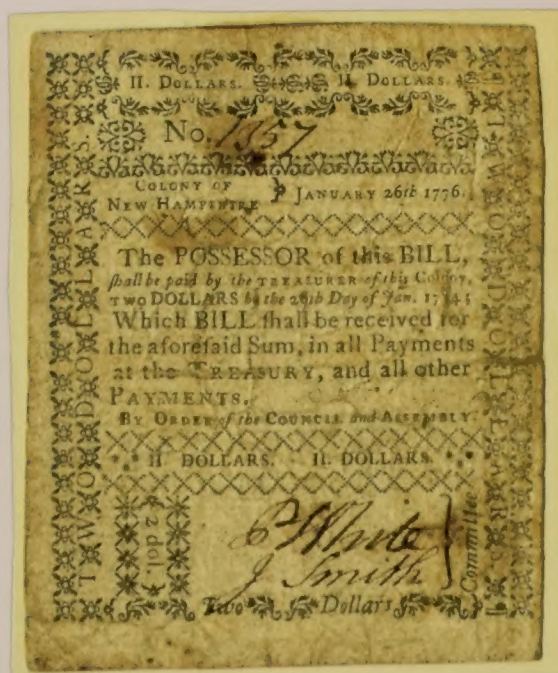 II. DOLLARS. II. DOLLARS.
No. 1357
COLONY OF
NEW HAMPSHIRE } JANUARY 26th 1776.
The POSSESSOR of this BILL,
shall be paid by the TREASURER of this COLONY,
TWO DOLLARS by the 26th Day of Jan.
Which BILL shall be received for
the aforesaid Sum, in all Payments
at the TREASURY, and all other
PAYMENTS.
BY ORDER of the COUNCIL and ASSEMBLY.
II DOLLARS. II. DOLLARS.
2 dol.
P White
J Smith
Committee
Two Dollars
TWO DOLLARS.
TWO DOLLARS